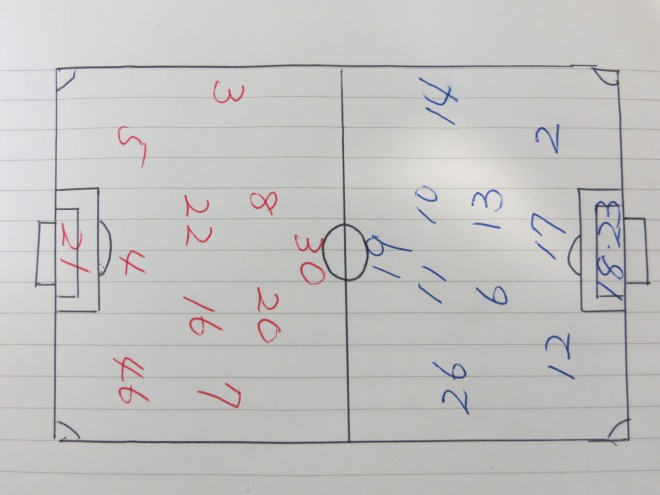 21
5 4 46
3 22 16 7
8 20
30
19
14 10 11 26
13 6
2 17 12
18·23